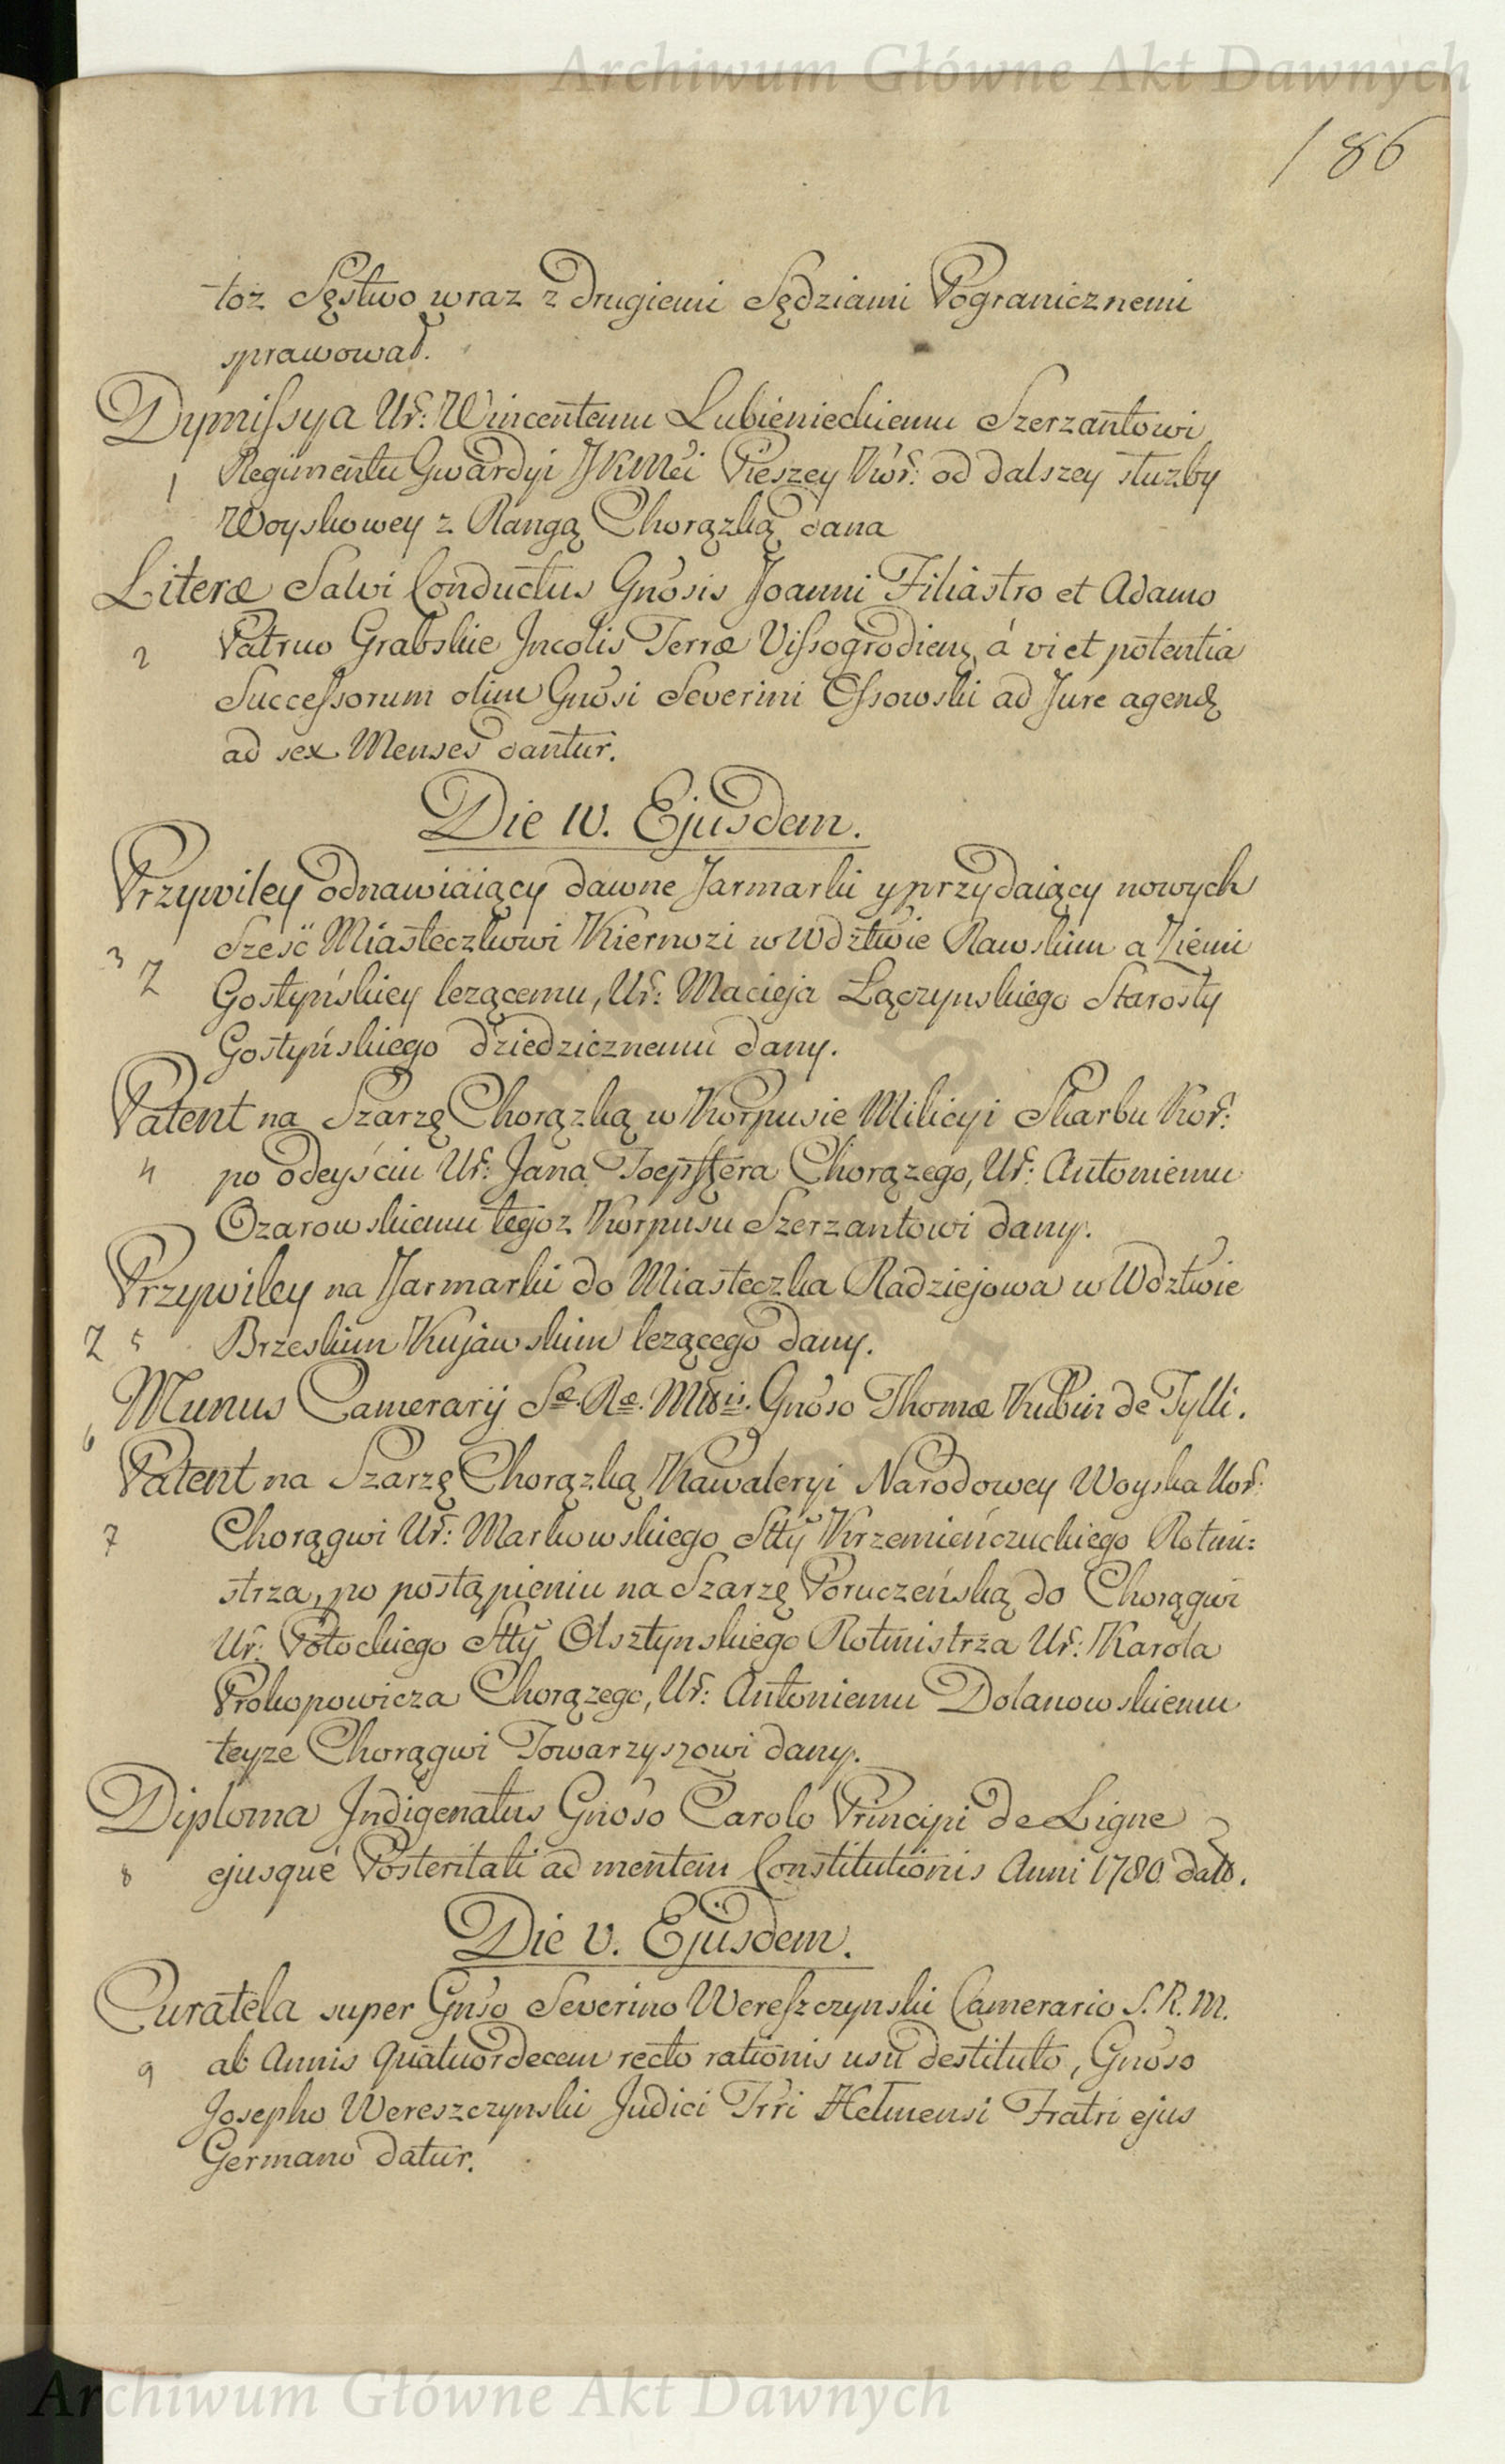 Archiwum Główne Akt Dawnych
186
toż Sęstwo wraz z drugiemi Sędziami Pogranicznemi
sprawował.
Dymissya Ur: Wincentemu Lubienieckiemu Szerzantowi
1 Regimentu Gwardyi JKMci Pieszey Kor: od dalszey służby
Woyskowey z Rangą Chorązką dana
Literæ Salvi Conductus Gnosis Joanni Filiastro et Adamo
2 Patruo Grabskie Incolis Terræ Vissogrodien, á vi et potentia
Successorum olim Gnosi Severini Ossowski ad Jure agend
ad sex Menses dantur.
Die IV. Ejusdem.
Przywiley odnawiaiący dawne Jarmarki y przydaiący nowych
3 Z Sześć Miasteczkowi Kiernozi w Wdztwie Rawskim a Ziemi
Gostyńskiey lezącemu, Ur: Macieja Łączynskiego Starosty
Gostyńskiego dziedzicznemu dany.
Patent na Szarzę Chorązką w Korpusie Milicyi Skarbu Kor:
4 po odeyściu Ur: Jana Chorązego, Ur: Antoniemu
Ozarowskiemu tegoz Korpusu Szerzantowi dany.
Przywiley na Jarmarki do Miasteczka Radziejowa w Wdztwie
Z 5 Brzeskim Kujawskim lezącego dany.
6 Munus Camerarij Sæ. Ræ. Mttis. Gnoso Thomæ Kubin de Tylli.
Patent na Szarzę Chorązką Kawaleryi Narodowey Woyska Kor:
7 Chorągwi Ur: Markowskiego Stty Krzemieńczuckiego Rotmi:
strza, po postąpieniu na Szarzę Poruczeńską do Chorągwi
Ur: Potockiego Stty Olsztynskiego Rotmistrza Ur: Karola
Prokopowicza Chorązego, Ur: Antoniemu Dolanowskiemu
teyze Chorągwi Towarzyszowi dany.
Diploma Indigenatus Gnoso Carolo Principi de Ligne
8 ejusque Posteritati ad mentem Constitutionis Anni 1780.
Die V. Ejusdem.
Curatela super Gnso Severino Wereszczynski Camerario S. R. M.
9 ab Annis quatuordecem recto rationis usu destituto, Gnoso
Josepho Wereszczynski Judici Trri Helmensi Fratri ejus
Germano datur.
Archiwum Główne Akt Dawnych